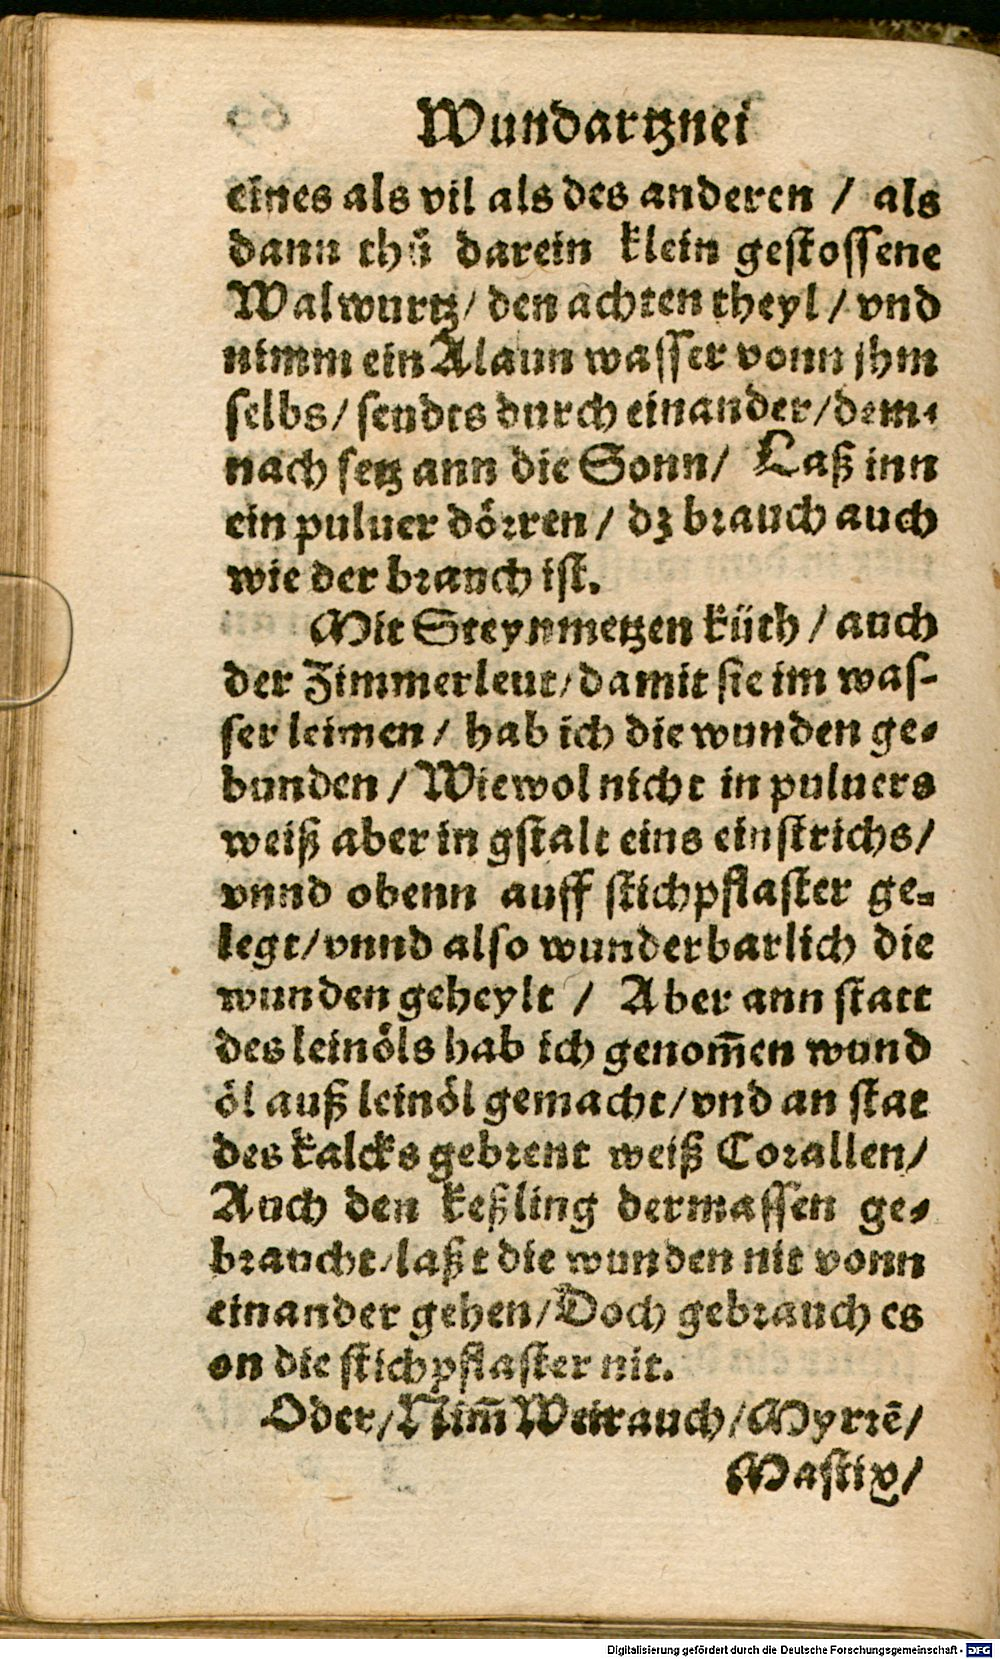 Wundartznei
eines als vil als des anderen / als
dann thů darein klein gestossene
Walwurtz / den achten theyl / vnd
nimm ein Alaun wasser vonn jhm
selbs / seudts durch einander / dem⸗
nach setz ann die Sonn / Laß inn
ein puluer dörren / dz brauch auch
wie der brauch ist.
Mit Steynmetzen küth / auch
der Zimmerleut / damit sie im was⸗
ser leimen / hab ich die wunden ge⸗
bunden / Wiewol nicht in puluers
weiß aber in gstalt eins einstrichs /
vnnd obenn auff stichpflaster ge⸗
legt / vnnd also wunderbarlich die
wunden geheylt / Aber ann statt
des leinöls hab ich genom̃en wund
öl auß leinöl gemacht / vnd an stat
des kalcks gebrent weiß Corallen /
Auch den keßling dermassen ge⸗
braucht / laßt die wunden nit vonn
einander gehen / Doch gebrauch es
on die stichpflaster nit.
Oder / Nim̃ Weirauch / Myrrē /
Mastix /
Digitalisierung gefördert durch die Deutsche Forschungsgemeinschaft - DFG